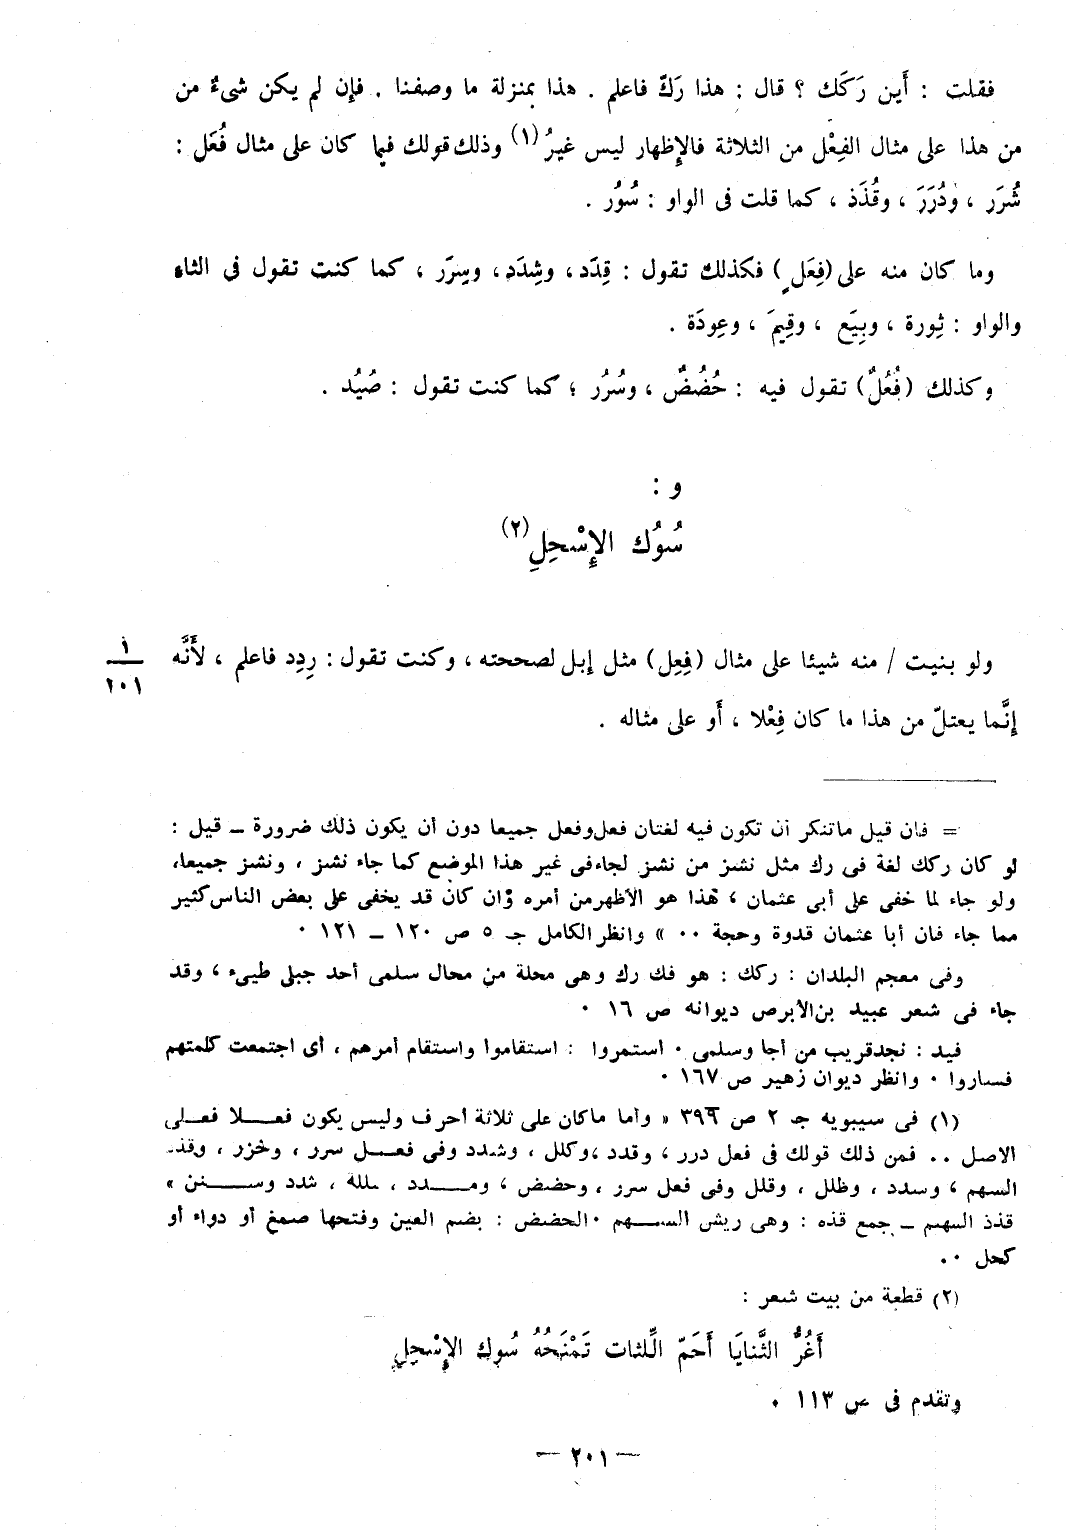 فقلت : أَين رَكَك ؟ قال : هذا رَكّ فاعلم . هذا بمنزلة ما وصفنا . فإِن لم يكن شىءٌ من
من هذا على مثال الفِعْل من الثلاثة فالإِظهار ليس غيرُ (١) وذلك قولك فيما كان على مثال فُعَل :
شُرَر ، ودُرَرَ ، وقُذَذ ، كما قلت فى الواو : سُوَُر .
وما كان منه على (فِعَل) فكذلك تقول : قِدَد ، وشِدَد ، وسِرَر ، كما كنت تقول فى الثاء
والواو : ثِورة ، وبِيَع ، وقِيمَ ، وعِودَة .
وكذلك (فُعُلٌ) تقول فيه : حُضُضٌ ، وسُرُر ؛ كما كنت تقول : صُيُد .
و :
سُوُك الإِسْحِلِ (٢)
ولو بنيت / منه شيئا على مثال (فِعِل) مثل إبل لصححته ، وكنت تقول : رِدِد فاعلم ، لأَنَّه
١
٢٠١
إنَّما يعتلّ من هذا ما كان فِعْلا ، أَو على مثاله .
= فان قيل ماتنكر أن تكون فيه لغتان فعل وفعل جميعا دون أن يكون ذلك ضرورة ــ قيل :
لو كان ركك لغة فى رك مثل نشز من نشز لجاء فى غير هذا الموضع كما جاء نشز ، ونشز جميعا،
ولو جاء لما خفى على أبى عثمان ، هذا هو الأظهر من أمره وان كان قد يخفى على بعض الناس كثير
مما جاء فان أبا عثمان قدوة وحجة ٠٠ » وانظر الكامل جـ ٥ ص ١٢٠ ــ ١٢١ ٠
وفى معجم البلدان : ركك : هو فك رك وهى محلة من محال سلمى أحد جبلى طيىء ، وقد
جاء فى شعر عبيد بن الأبرص ديوانه ص ١٦ ٠
فيد : نجد قريب من أجا وسلمى ٠ استمروا : استقاموا واستقام أمرهم ، أى اجتمعت كلمتهم
فساروا ٠ وانظر ديوان زهير ص ١٦٧ ٠
(١) فى سيبويه جـ ٢ ص ٣٩٦ « وأما ماكان على ثلاثة أحرف وليس يكون فعـــلا فعــلى
الاصل .. فمن ذلك قولك فى فعل درر ، وقدد ،وكلل ، وشدد وفى فعـــل سرر ، وخزر ، وقذذ
السهم ، وسدد ، وظلل ، وقلل وفى فعل سرر ، وحضض ، ومــدد ، بللة ، شدد وســنن »
قذذ السهم ــ جمع قذه : وهى ريش الســهم ٠ الحضض : بضم العين وفتحها صمغ أو دواء أو
كحل ٠٠
(٢) قطعة من بيت شعر :
أَغُرُّ الثَّنايَا أَحَمّ اللِّثات تَمْنَحُهُ سُوك الإِسْحِلِ
وتقدم فى ص ١١٣ ٠
— ٢٠١ —